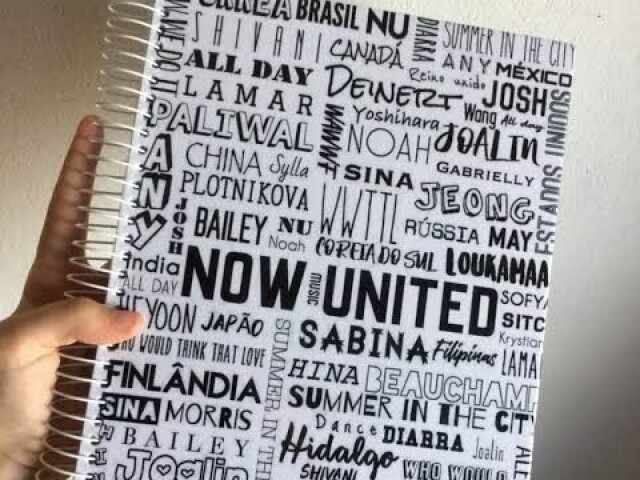 BRASIL NU
SHIVANI
CANADÁ
DIARRA
SUMMER IN THE CITY
ANY MÉXICO
ALL DAY
Reino unido
JOSH
LAMAR
DEINERT
Wang All day
PALIWAL
Yoshihara
NOAH
JOALIN
CHINA Sylla
SINA
GABRIELLY
ANY
PLOTNIKOVA
WWTTL
JEONG
JOSH
BAILEY NU
Noah
RÚSSIA MAY
COREIA DO SUL
LOUKAMAA
India
ALL DAY
NOW UNITED
music
SOFYA
HEYOON JAPÃO
SABINA
Filipinas
WHO WOULD THINK THAT LOVE
HINA
BEAUCHAMP
FINLÂNDIA
SUMMER IN THE CITY
SINA MORRIS
Dance
DIARRA
Joalin
BAILEY
Hidalgo
Joalin
SHIVANI
WHO WOULD